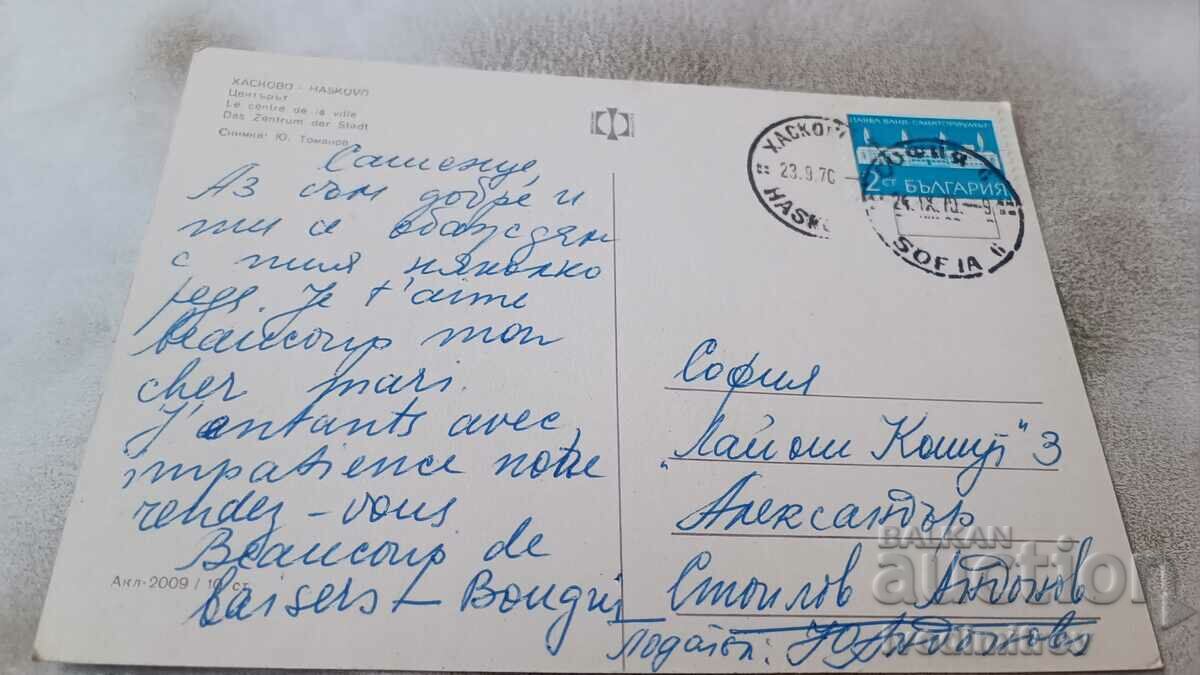 ХАСКОВО - HASKOVO
Центърът
Le centre de la ville
Das Zentrum der Stadt
Снимка: Ю. Томанов
Сашенце,
Аз съм добре и
ти се обаждам
с тия няколко
реда. Je t'aime
beaucoup mon
cher mari.
J'entants avec
impatience notre
rendez-vous
Beaucoup de
baisers
Акл-2009 / 10 ст.
ХАСКОВО
23.9.70
HASKOVO
СОФИЯ
24.IX.70.-9
SOFIA 6
2 СТ БЪЛГАРИЯ
София
"Лайош Кошут" 3
Александър
Стоилов Андонов
Подател: Андонова
BALKAN
auction